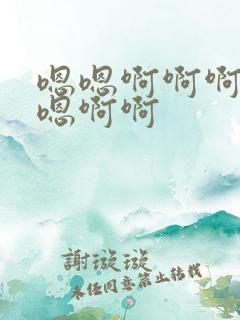 嗯嗯啊啊啊
嗯啊啊
謝璇璇
未经同意禁止转载